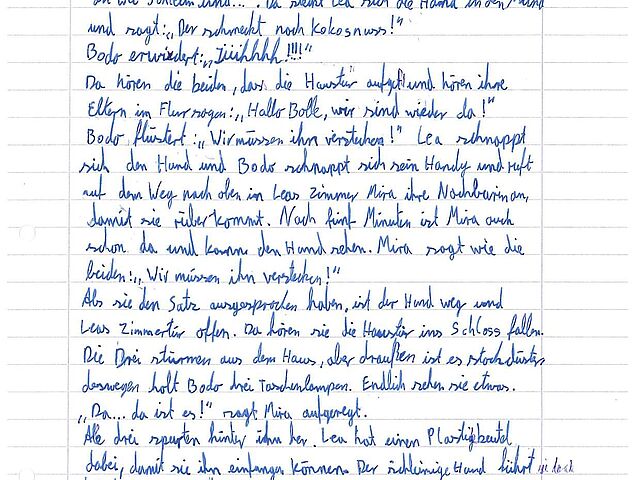 und sagt: „Der schmeckt nach Kokosnuss!"
Bodo erwiedert: „Iiiihhhh!!!!"
Da hören die beiden, dass die Haustür aufgeht und hören ihre
Eltern im Flur sagen: „Hallo Bolle, wir sind wieder da!"
Bodo flüstert: „Wir müssen ihn verstecken!" Lea schnappt
sich den Hund und Bodo schnappt sich sein Handy und ruft
auf dem Weg nach oben in Leas Zimmer Mira ihre Nachbarin an,
damit sie rüber kommt. Nach fünf Minuten ist Mira auch
schon da und kann den Hund sehen. Mira sagt wie die
beiden: „Wir müssen ihn verstecken!"
Als sie den Satz ausgesprochen haben, ist der Hund weg und
Leas Zimmertür offen. Da hören sie die Haustür ins Schloss fallen.
Die Drei stürmen aus dem Haus, aber draußen ist es stockdüster
deswegen holt Bodo drei Taschenlampen. Endlich sehen sie etwas.
„Da... da ist es!" sagt Mira aufgeregt.
Alle drei spurten hinter ihm her. Lea hat einen Plastigbeutel
dabei, damit sie ihn einfangen können. Der schleimige Hund